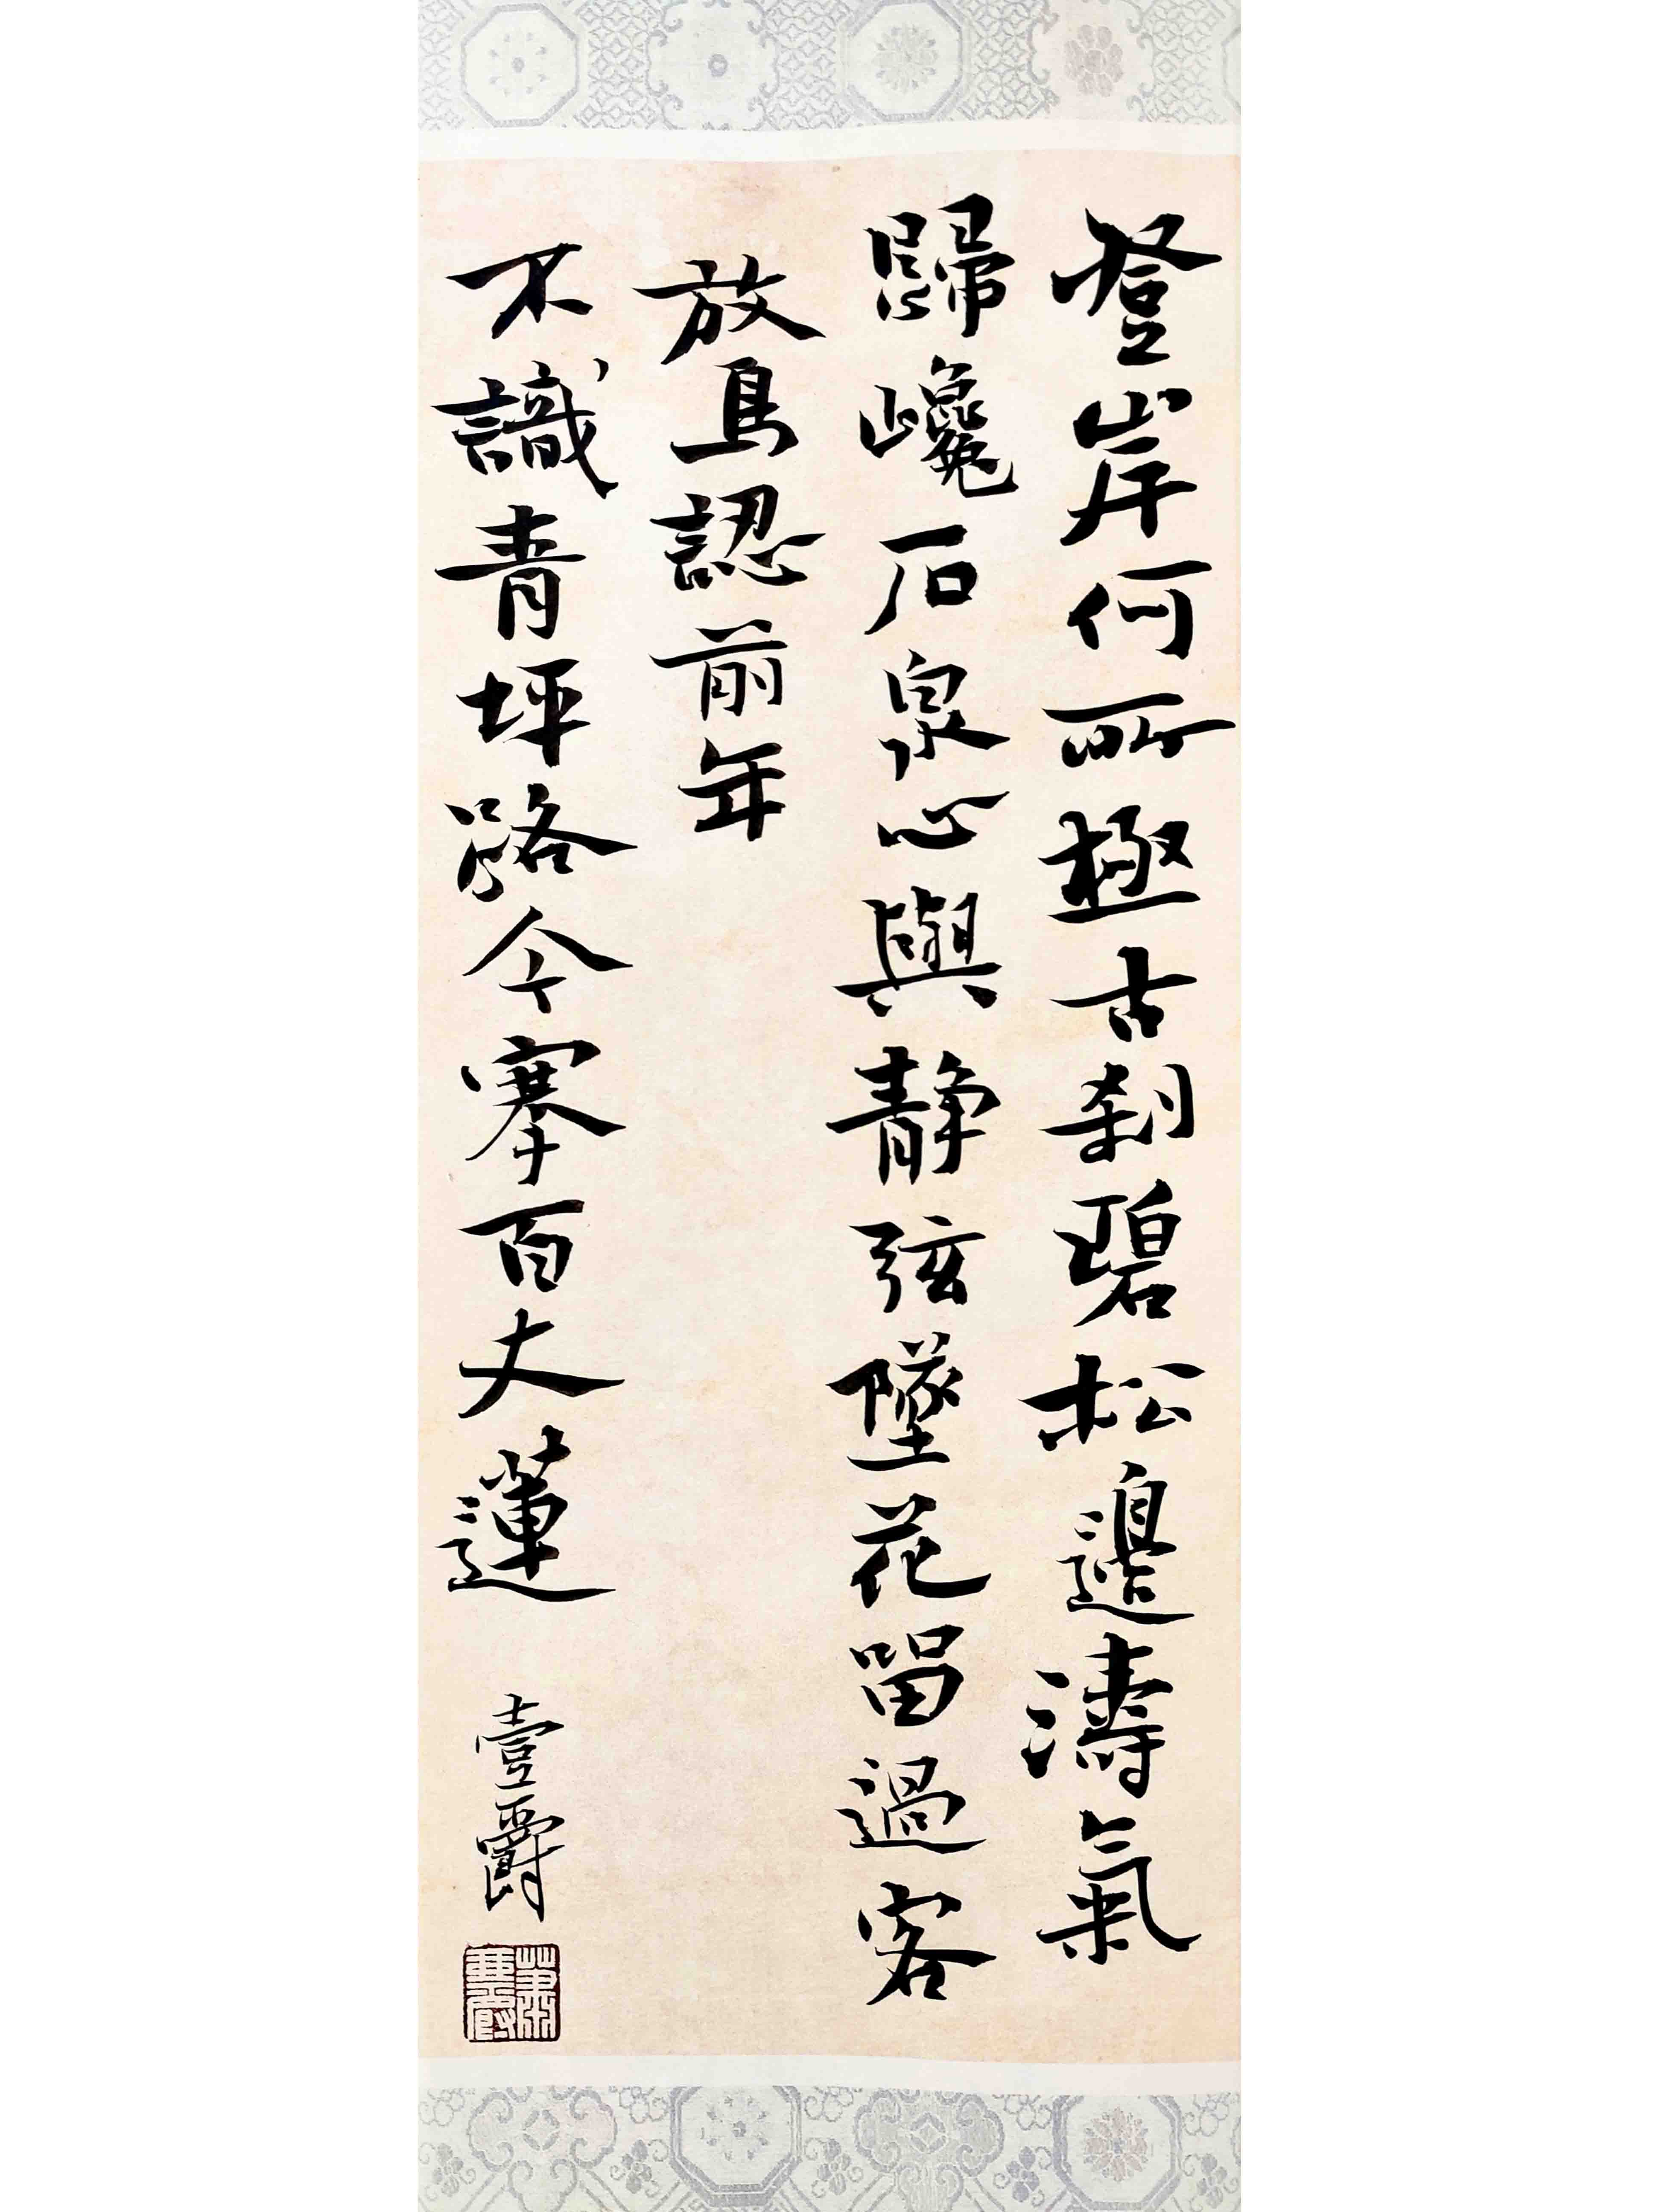 登岸何所極古刹碧松邊濤氣
歸巉石泉心與靜弦墜花留過客
放鳥認前年
不識青坪路今搴百丈蓮
壹爵